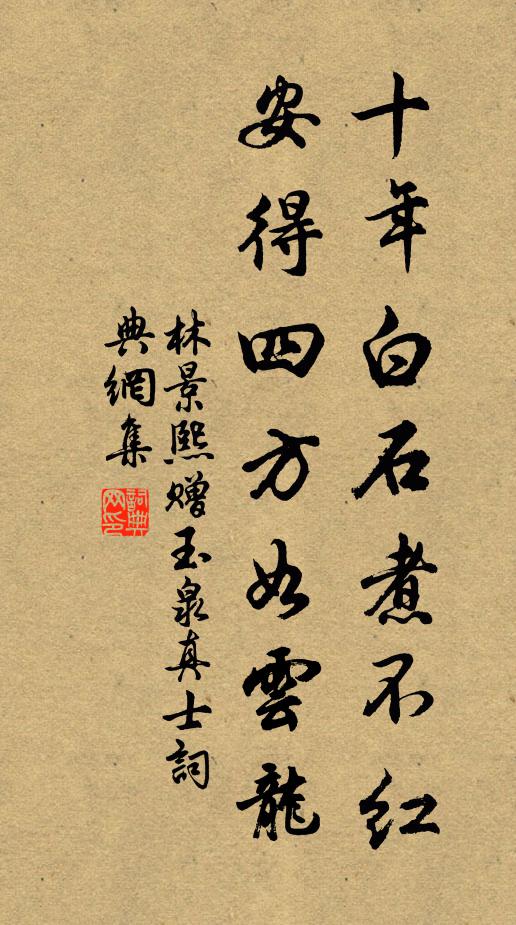 十年白石煮不红
安得四方如雲龍
林景熙赠玉泉真士詞
典網集
詞典網印